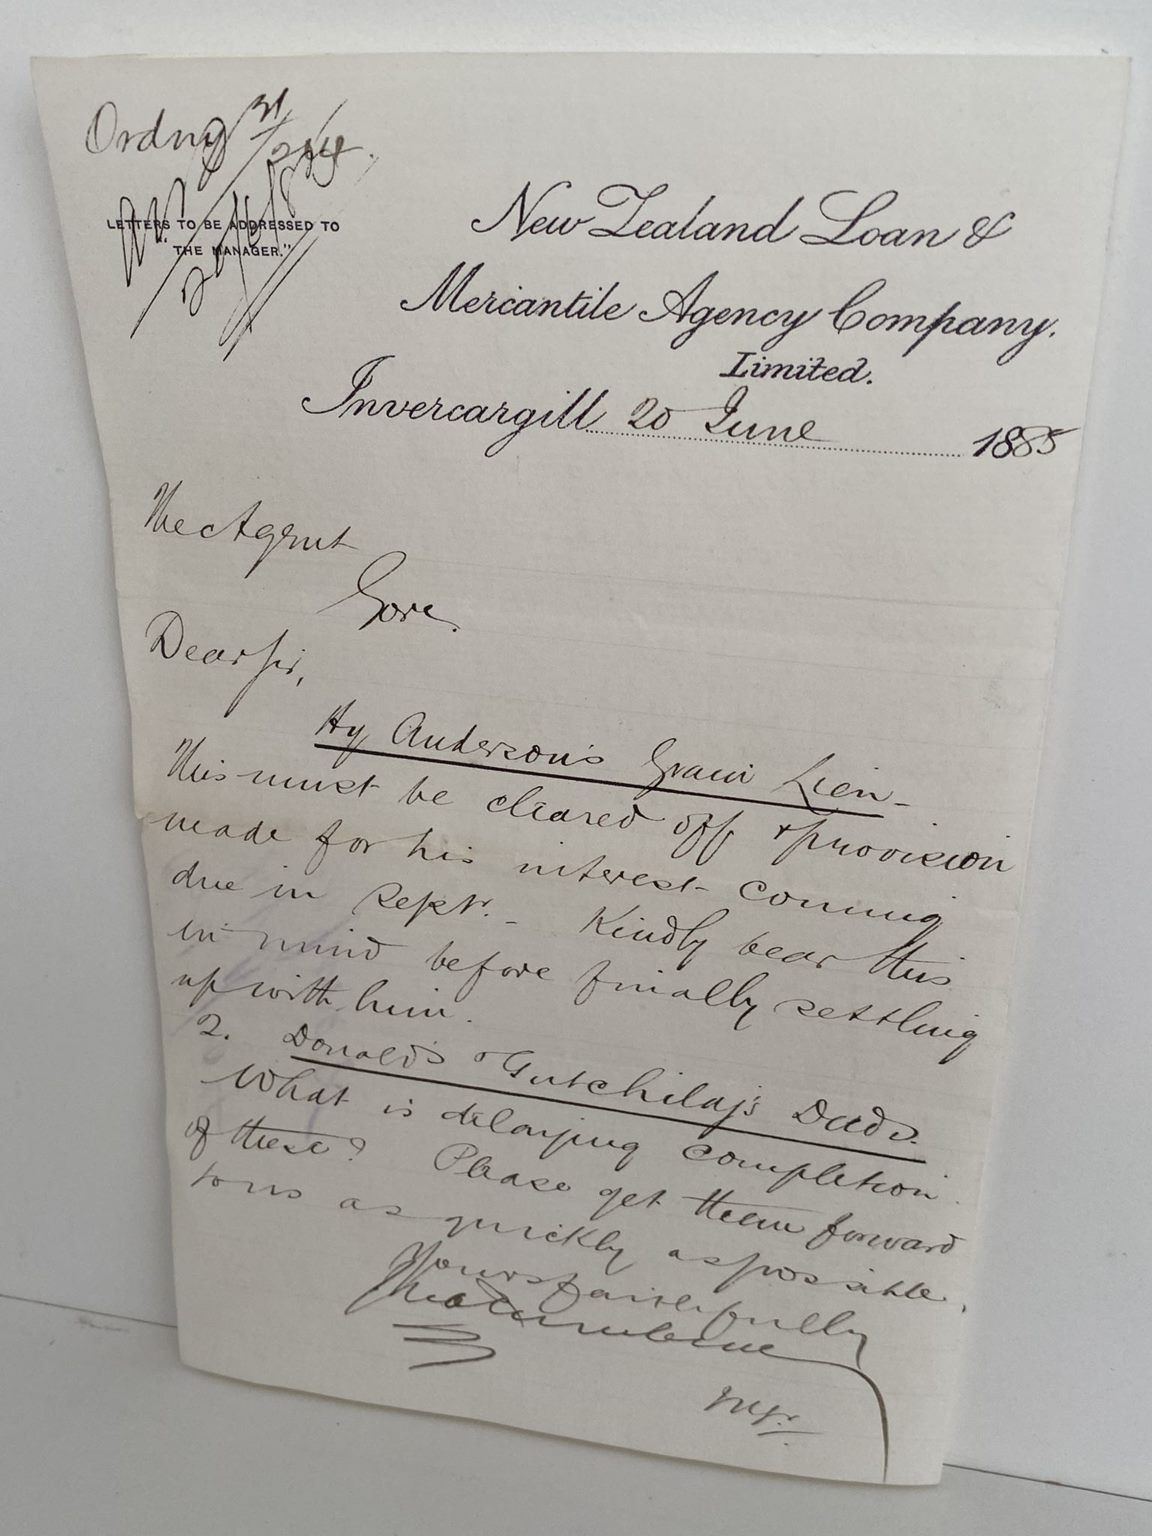 Ordny 31/284.
LETTERS TO BE ADDRESSED TO
"THE MANAGER."
New Zealand Loan &
Mercantile Agency Company.
Limited.
Invercargill 20 June 1885
The Agent
Gore.
Dear Sir,
Hy Anderson's Grain Lien -
This must be cleared off & provision
made for his interest coming
due in Sept. - Kindly bear this
in mind before finally settling
up with him.
2. Donald's & Deeds.
What is delaying completion
of these? Please get them forward
to us as quickly as possible.
Yours faithfully
Mgr.